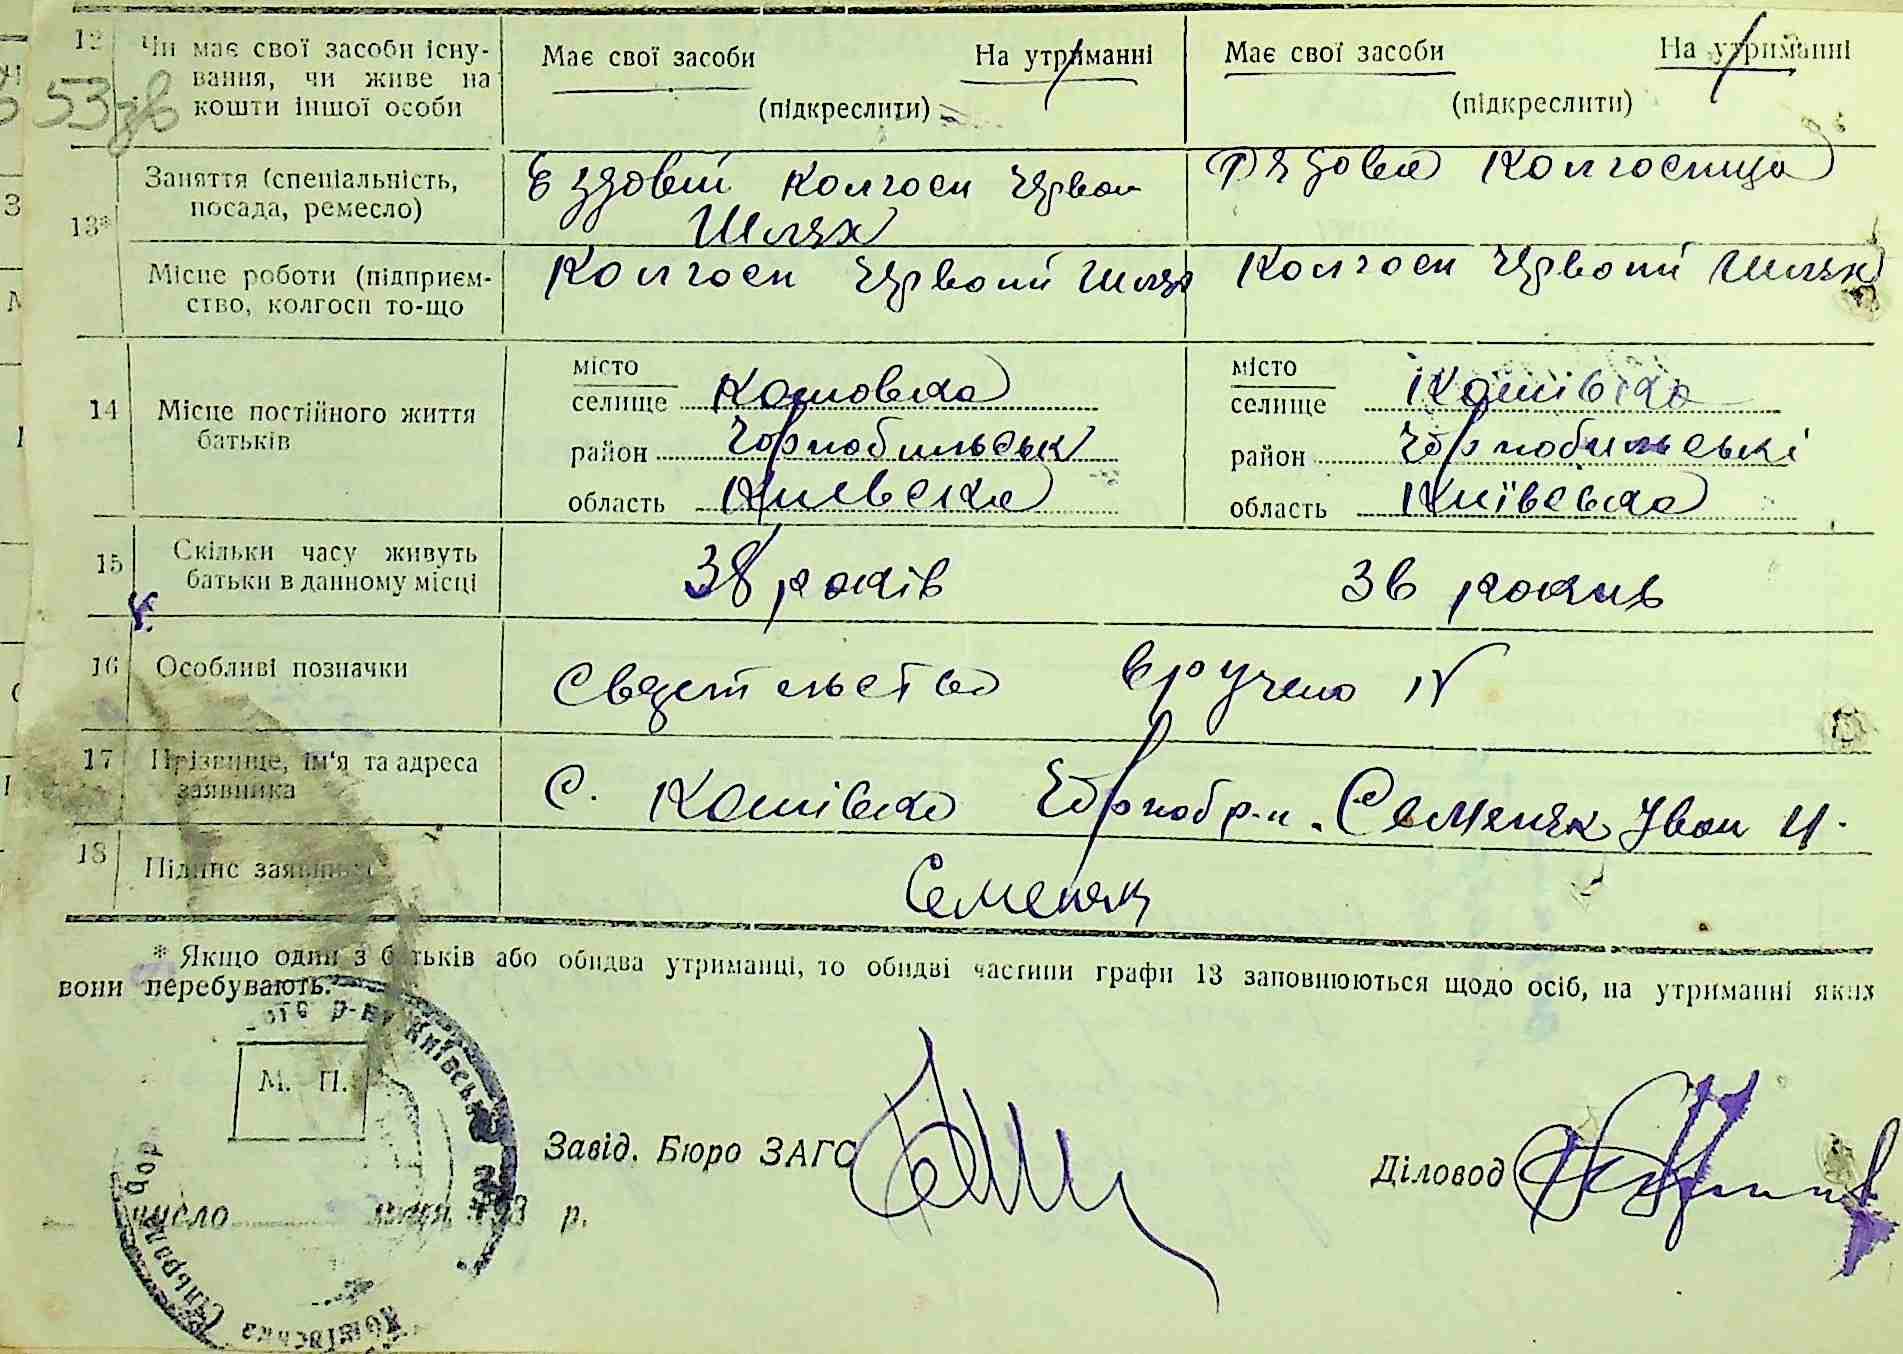 12 Чи має свої засоби існу-
вання, чи живе на
кошти іншої особи
Має свої засоби На утриманні
(підкреслити)
Має свої засоби На утриманні
(підкреслити)
53зв
13*
Заняття (спеціальність,
посада, ремесло)
Ездовий колгосп Червон
Шлях
Рядова колгоспица
Місце роботи (підприєм-
ство, колгосп то-що
Колгосп Червоний Шлях
Колгосп Червоний Шлях
14 Місце постійного життя
батьків
місто
селище Кошовка
район Чорнобильськ
область Киевска
місто
селище Кошівка
район Чорнобильські
область Київська
15 Скільки часу живуть
батьки в данному місці
38 років
36 рокив
16 Особливі позначки
Сведетельство вручено IV
17 Прізвище, ім'я та адреса
заявника
С. Кошівка Чорноб р-н. Семеняк Iван И.
18 Підпис заявника
Семеняк
* Якщо один з батьків або обидва утриманці, то обидві частини графи 13 заповнюються щодо осіб, на утриманні яких
вони перебувають.
М. П.
Завід. Бюро ЗАГС
Діловод
число 193 р.
Кошівська Сільрада Чор ого р-ну Київськ